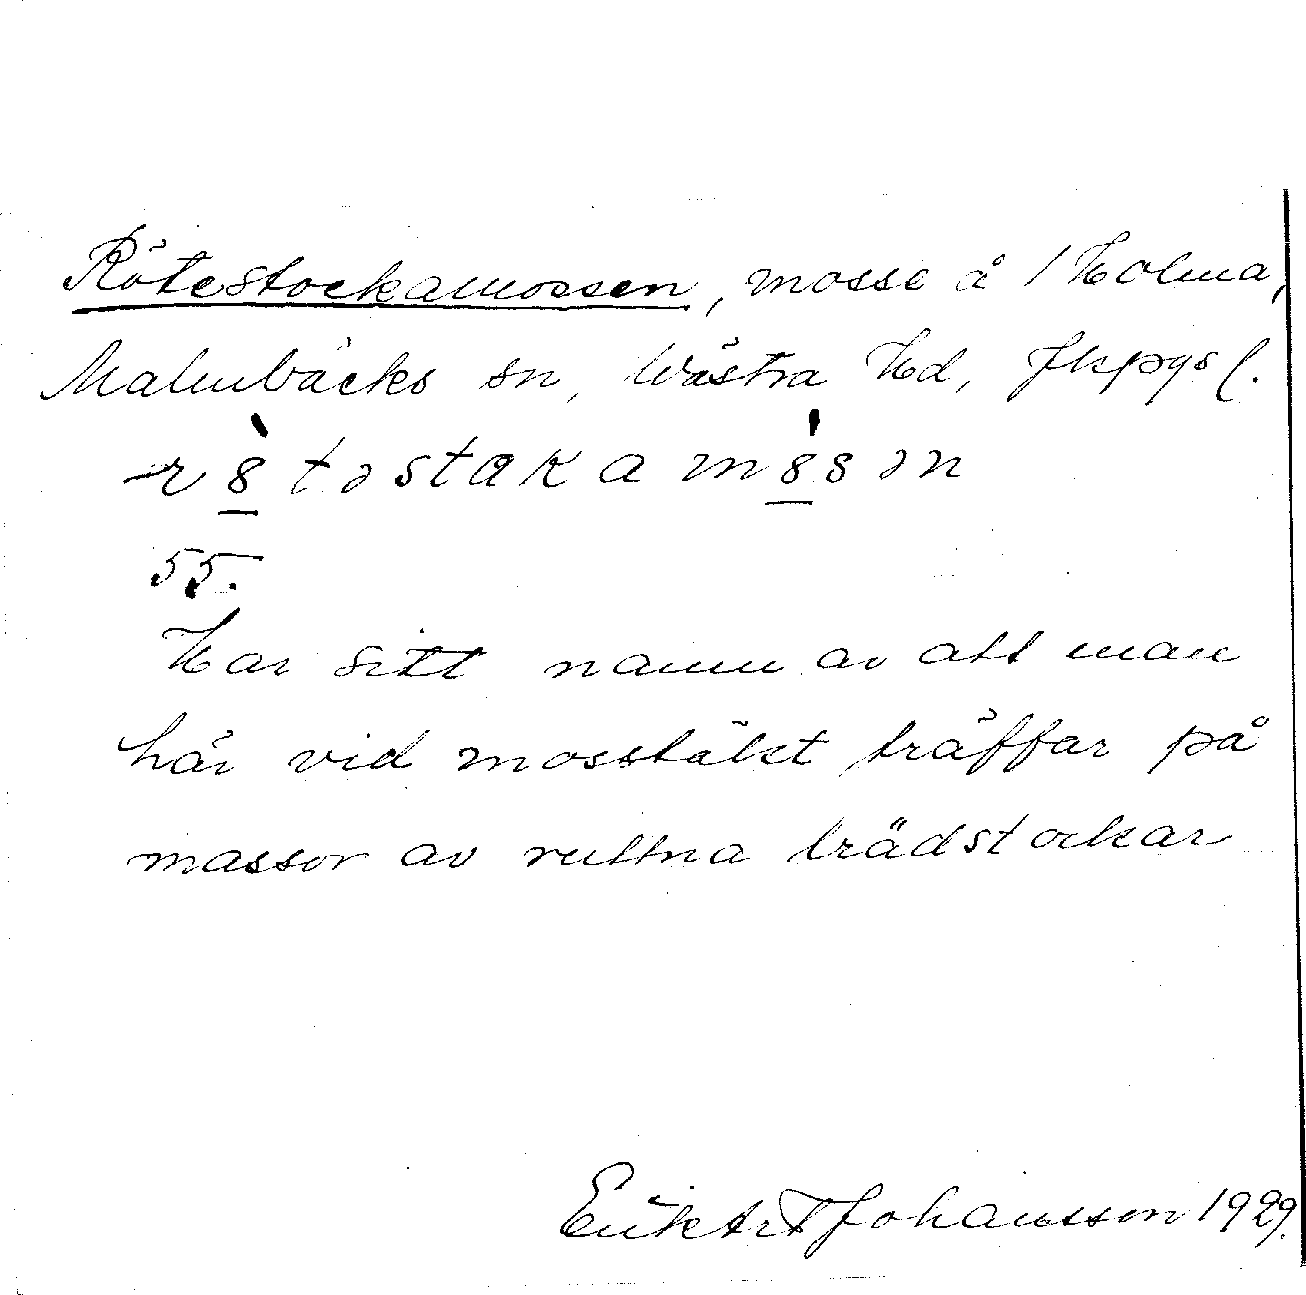 Rötestockamossen, mosse å 1 Holma,
Malmbäcks sn, Västra Hd, Jkpgs l.
r8̲̀təstakam8̲̍sən
55.
Har sitt namn av att man
här vid mosstäkt träffar på
massor av ruttna trädstockar
Johansson 1929.